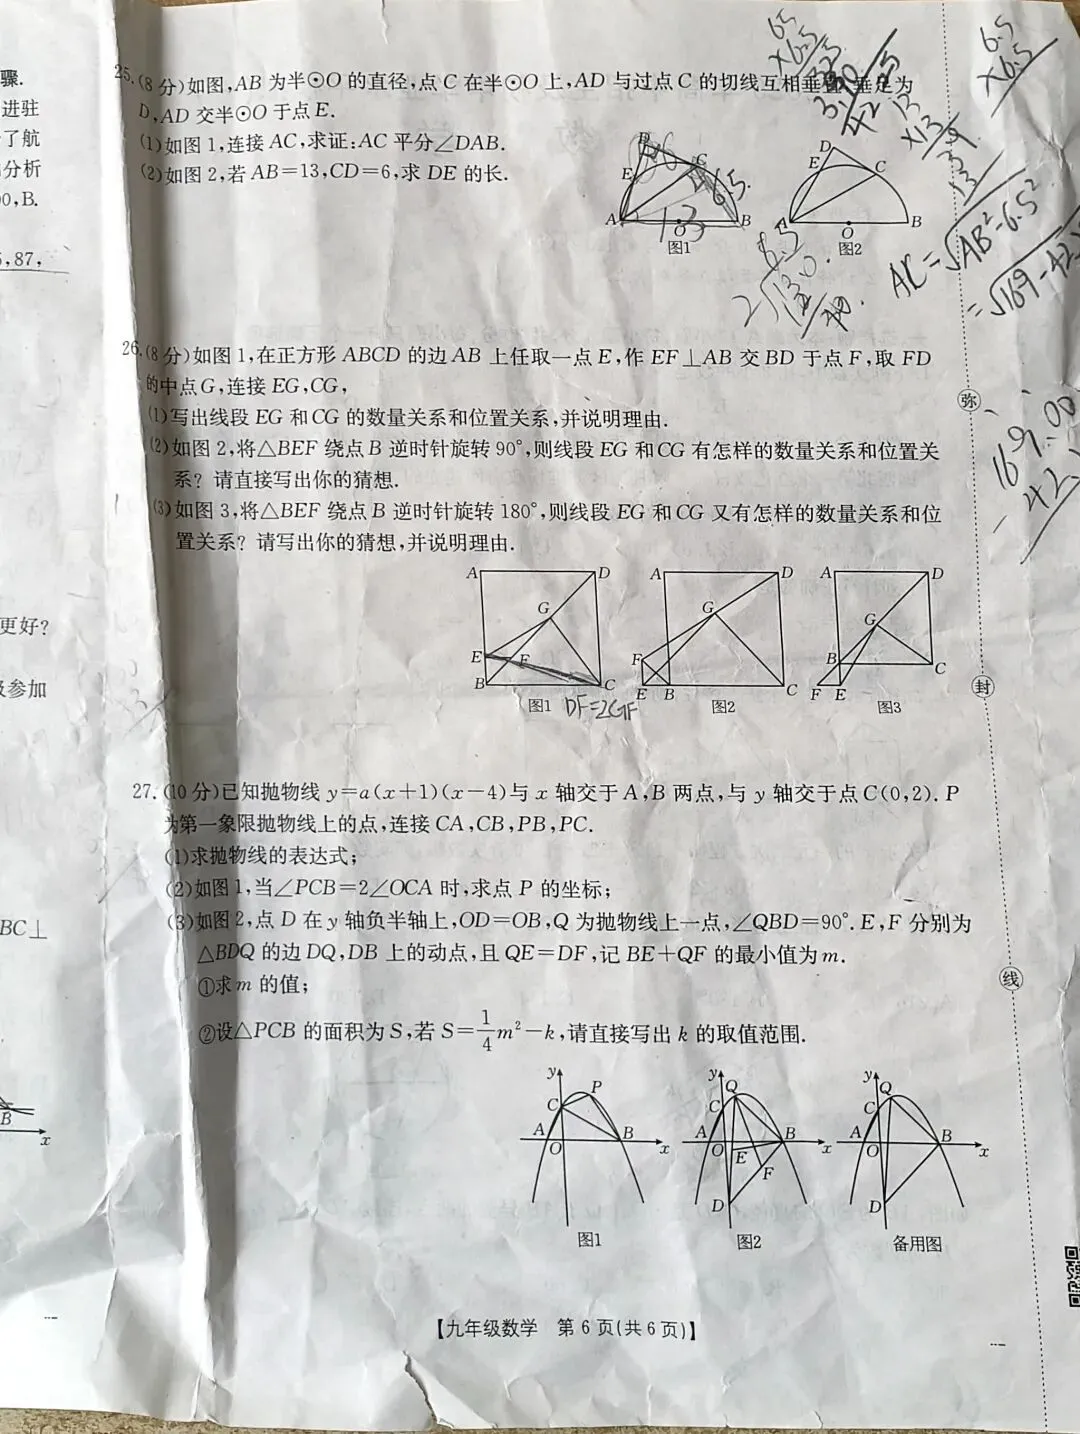 骤.
进驻
了航
分析
0,B.
,87,
更好?
及参加
BC⊥
B
x
25.(8分)如图,AB为半⊙O的直径,点C在半⊙O上,AD与过点C的切线互相垂直,垂足为
D,AD交半⊙O于点E.
(1)如图1,连接AC,求证:AC平分∠DAB.
(2)如图2,若AB=13,CD=6,求DE的长.
D
C
E
A
O
B
图1
D
E
C
O
B
图2
6.5
×6.5
13
×13
AC=√AB²-6.5²
=√169-42.
169.00
26.(8分)如图1,在正方形ABCD的边AB上任取一点E,作EF⊥AB交BD于点F,取FD
的中点G,连接EG,CG,
(1)写出线段EG和CG的数量关系和位置关系,并说明理由.
(2)如图2,将△BEF绕点B逆时针旋转90°,则线段EG和CG有怎样的数量关系和位置关
系?请直接写出你的猜想.
(3)如图3,将△BEF绕点B逆时针旋转180°,则线段EG和CG又有怎样的数量关系和位
置关系?请写出你的猜想,并说明理由.
A D G E F B C
图1
DF=2GF
A D G F E B C
图2
A D G B C F E
图3
27.(10分)已知抛物线y=a(x+1)(x-4)与x轴交于A,B两点,与y轴交于点C(0,2).P
为第一象限抛物线上的点,连接CA,CB,PB,PC.
(1)求抛物线的表达式;
(2)如图1,当∠PCB=2∠OCA时,求点P的坐标;
(3)如图2,点D在y轴负半轴上,OD=OB,Q为抛物线上一点,∠QBD=90°.E,F分别为
△BDQ的边DQ,DB上的动点,且QE=DF,记BE+QF的最小值为m.
①求m的值;
②设△PCB的面积为S,若S=1/4m²-k,请直接写出k的取值范围.
y P C A O B x
图1
y Q C A O E B x F D
图2
y Q C A O B x D
备用图
弥
封
线
【九年级数学 第6页(共6页)】